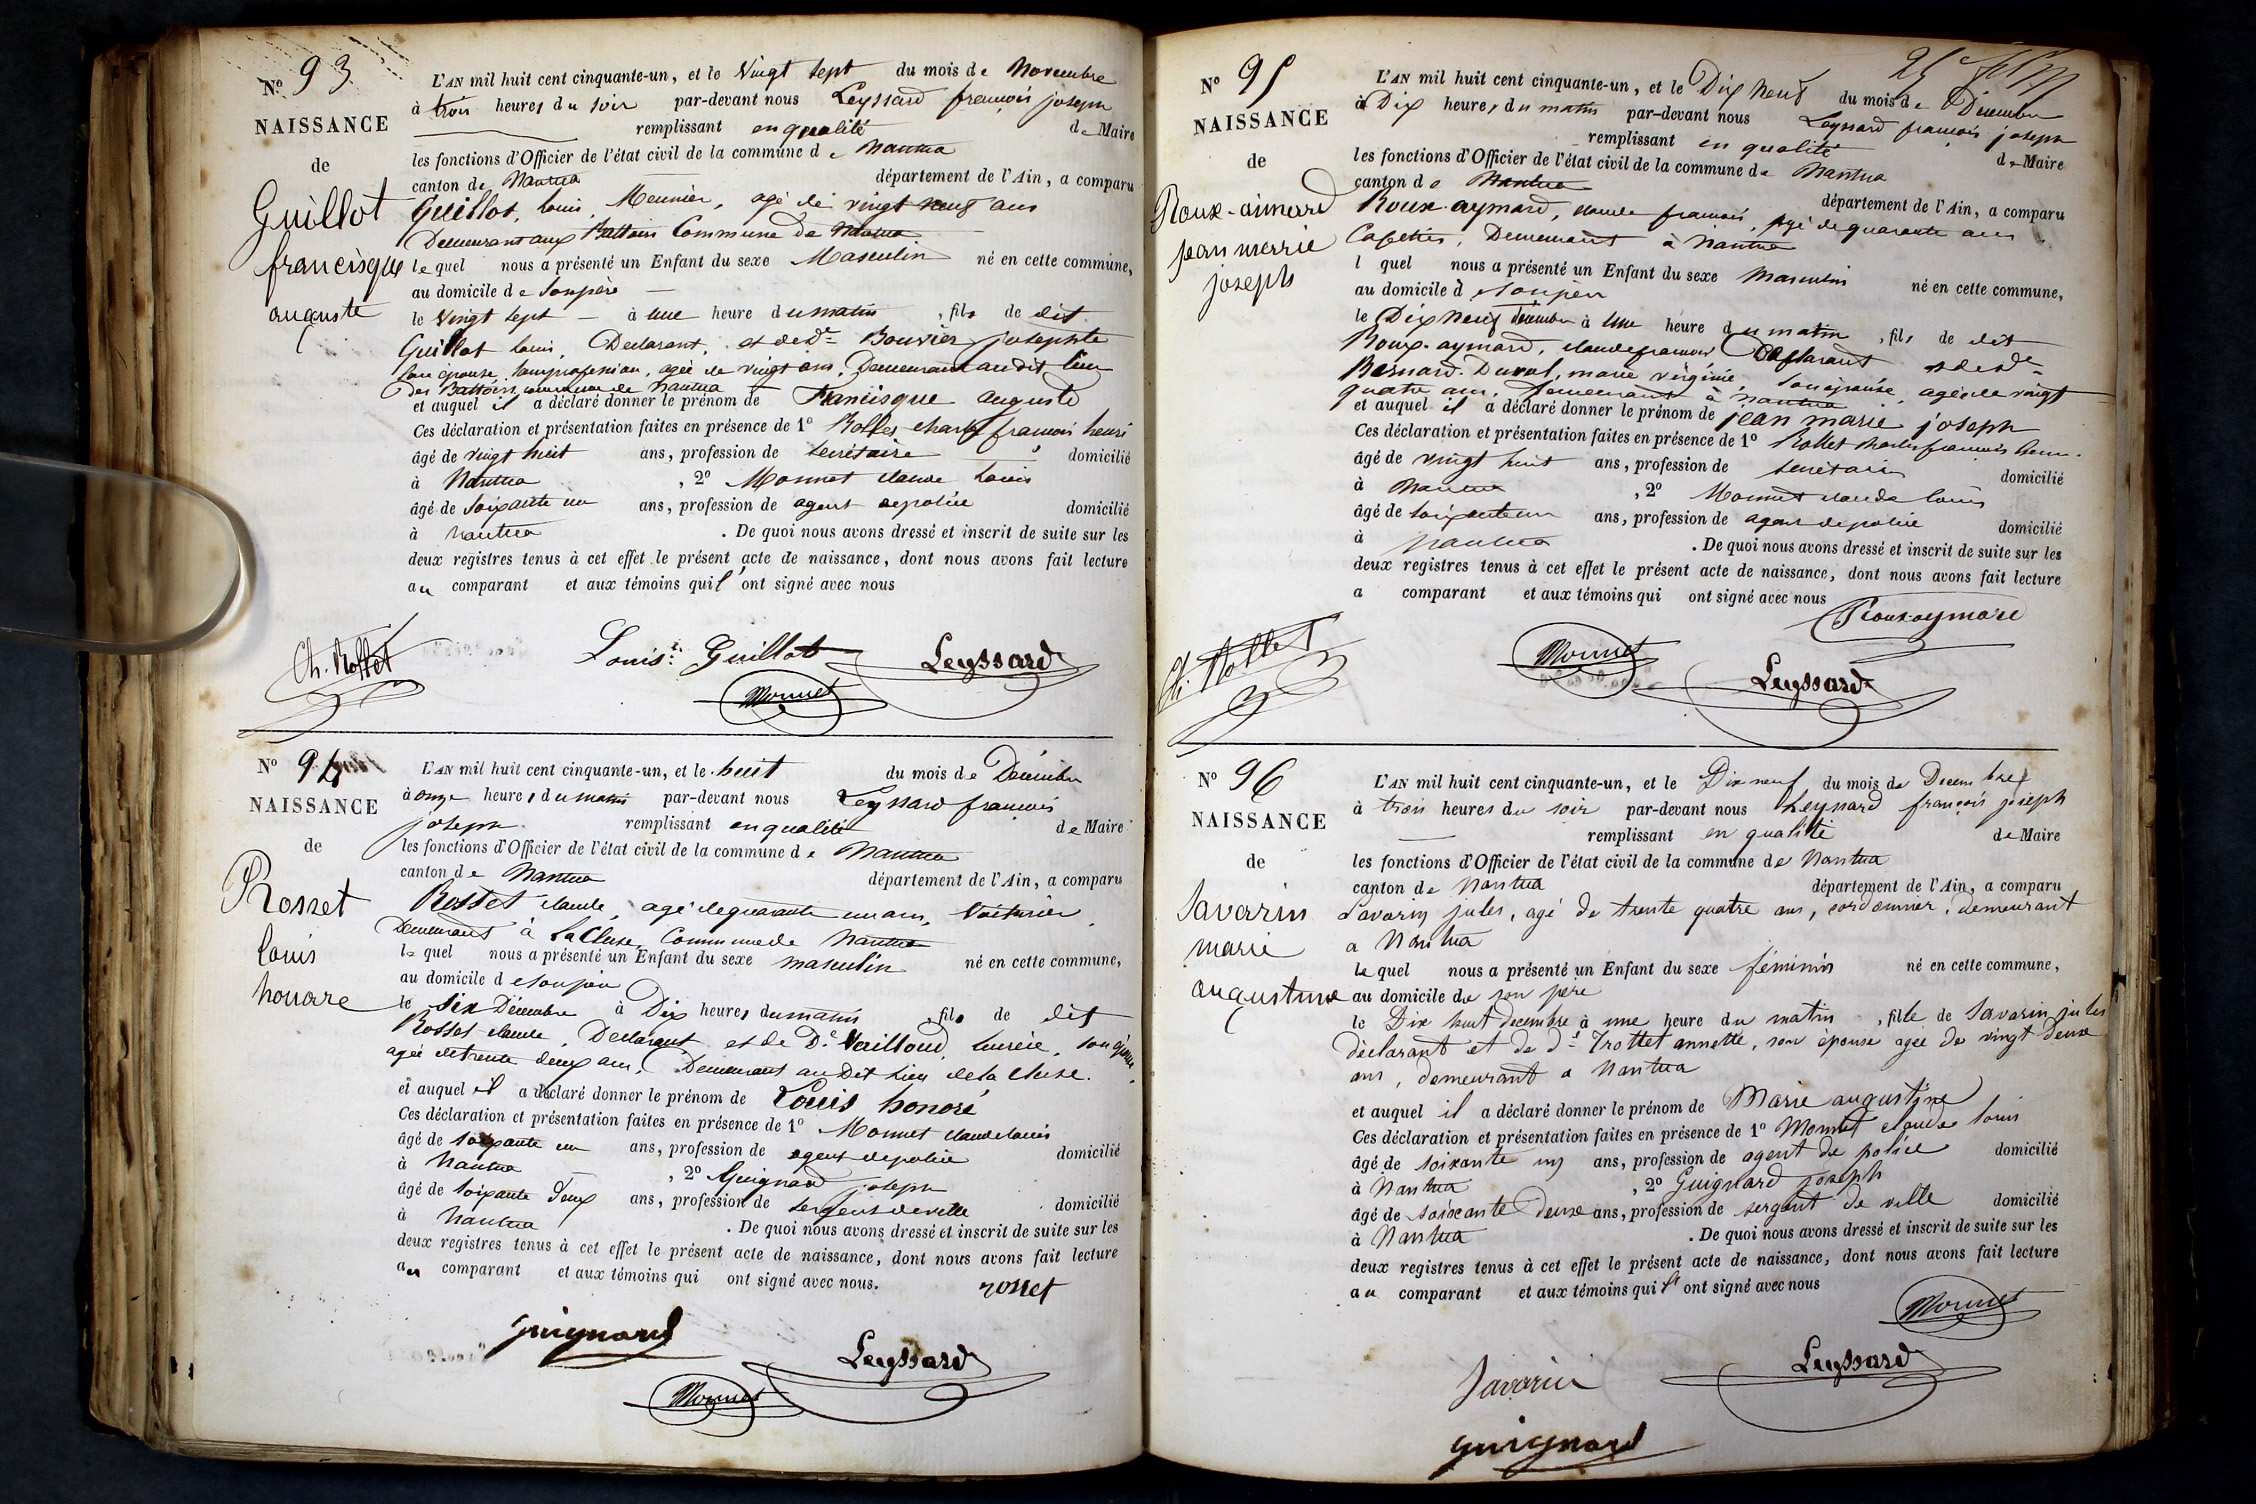 N° 93
NAISSANCE
de
Guillot
francisque
auguste
L'AN mil huit cent cinquante-un, et le Vingt sept du mois de Novembre
à trois heures du soir par-devant nous Leyssard françois joseph
remplissant en qualité de Maire
les fonctions d'Officier de l'état civil de la commune de Nantua
canton de Nantua département de l'Ain, a comparu
Guillot, Louis, Meunier, agé de vingt neuf ans
Demeurant aux Battoirs Commune de Nantua
lequel nous a présenté un Enfant du sexe Masculin né en cette commune,
au domicile de son père
le Vingt sept à une heure du matin, fils de dit
Guillot Louis, Declarant, et de De Bouvier josephte
son épouse, sans profession, agée de vingt ans, Demeurant audit lieu
des Battoirs, commune de Nantua
et auquel il a déclaré donner le prénom de Francisque auguste
Ces déclaration et présentation faites en présence de 1° Rollet charles françois henri
âgé de vingt huit ans, profession de secrétaire domicilié
à Nantua, 2° Monnet claude Louis
âgé de soixante un ans, profession de agent de police domicilié
à Nantua. De quoi nous avons dressé et inscrit de suite sur les
deux registres tenus à cet effet le présent acte de naissance, dont nous avons fait lecture
au comparant et aux témoins qui ont signé avec nous
Ch. Rollet
Louis Guillot
Leyssard
Monnet
N° 94
NAISSANCE
de
Rosset
louis
honore
L'AN mil huit cent cinquante-un, et le huit du mois de Décembre
à onze heures du matin par-devant nous Leyssard françois
joseph remplissant en qualité de Maire
les fonctions d'Officier de l'état civil de la commune de Nantua
canton de Nantua département de l'Ain, a comparu
Rosset claude, agé de quarante un ans, Voiturier,
Demeurant à La Cluse, Commune de Nantua
lequel nous a présenté un Enfant du sexe masculin né en cette commune,
au domicile de son père
le six Décembre à Dix heures du matin, fils de dit
Rosset claude, Declarant et de De Vailloud, Lucrèce, son épouse,
agée de trente deux ans, Demeurant audit Lieu de la Cluse.
et auquel il a déclaré donner le prénom de Louis honoré
Ces déclaration et présentation faites en présence de 1° Monnet claude louis
âgé de soixante un ans, profession de agent de police domicilié
à Nantua, 2° Guignard joseph
âgé de soixante Deux ans, profession de sergent de ville domicilié
à Nantua. De quoi nous avons dressé et inscrit de suite sur les
deux registres tenus à cet effet le présent acte de naissance, dont nous avons fait lecture
au comparant et aux témoins qui ont signé avec nous.
rosset
guignard
Leyssard
Monnet
N° 95
NAISSANCE
de
Roux-aimard
jean merrie
joseph
L'AN mil huit cent cinquante-un, et le Dix Neuf du mois de Décembre
à Dix heures du matin par-devant nous Leyssard françois joseph
remplissant en qualité de Maire
les fonctions d'Officier de l'état civil de la commune de Nantua
canton de Nantua département de l'Ain, a comparu
Roux-aymard, claude françois, agé de quarante ans
Cafetier, Demeurant à Nantua
lquel nous a présenté un Enfant du sexe Masculin né en cette commune,
au domicile de son père
le Dix Neuf Décembre à Une heure du matin, fils de dit
Roux-aymard, claude françois, Déclarant et de De
Bernard-Duval, marie virginie, son épouse, agée de vingt
quatre ans, Demeurant à Nantua
et auquel il a déclaré donner le prénom de jean marie joseph
Ces déclaration et présentation faites en présence de 1° Rollet charles françois henri
âgé de vingt huit ans, profession de secrétaire domicilié
à Nantua, 2° Monnet claude louis
âgé de soixante un ans, profession de agent de police domicilié
à Nantua. De quoi nous avons dressé et inscrit de suite sur les
deux registres tenus à cet effet le présent acte de naissance, dont nous avons fait lecture
a comparant et aux témoins qui ont signé avec nous
Rouxaymard
Ch. Rollet
Monnet
Leyssard
N° 96
NAISSANCE
de
Savarin
marie
augustine
L'AN mil huit cent cinquante-un, et le Dix neuf du mois de Decembre
à trois heures du soir par-devant nous Leyssard françois joseph
remplissant en qualité de Maire
les fonctions d'Officier de l'état civil de la commune de Nantua
canton de Nantua département de l'Ain, a comparu
Savarin jules, agé de trente quatre ans, cordonnier, demeurant
a Nantua
lequel nous a présenté un Enfant du sexe féminin né en cette commune,
au domicile de son père
le Dix huit decembre à une heure du matin, fille de Savarin jules
déclarant et de de Trottet annette, son épouse agée de vingt deux
ans, demeurant a Nantua
et auquel il a déclaré donner le prénom de Marie augustine
Ces déclaration et présentation faites en présence de 1° Monnet claude louis
âgé de soixante un ans, profession de agent de police domicilié
à Nantua, 2° Guignard joseph
âgé de soixante Deux ans, profession de sergent de ville domicilié
à Nantua. De quoi nous avons dressé et inscrit de suite sur les
deux registres tenus à cet effet le présent acte de naissance, dont nous avons fait lecture
au comparant et aux témoins qui ont signé avec nous
Monnet
Leyssard
Savarin
guignard